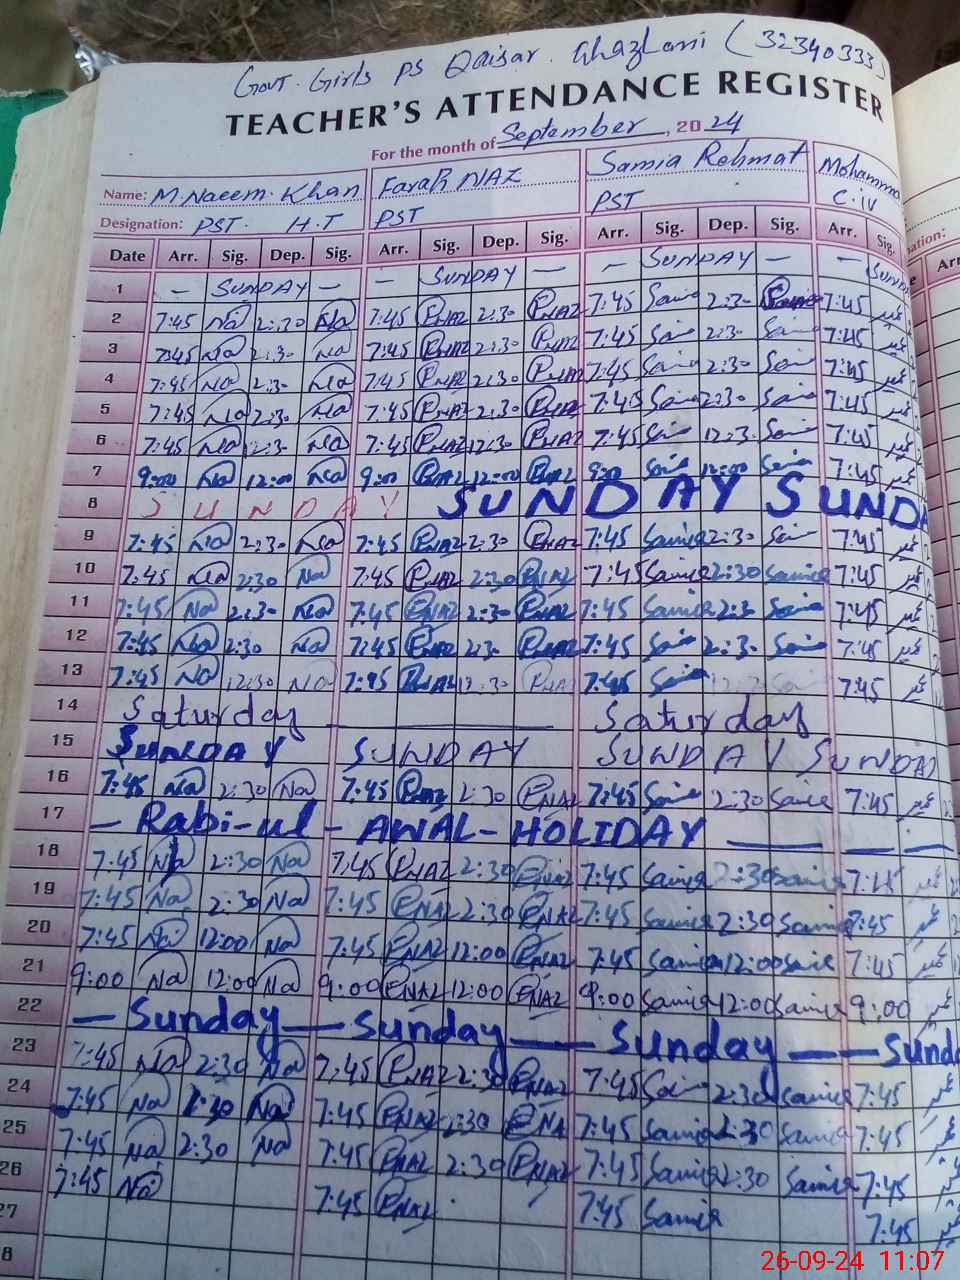 Govt. Girls PS Qaisar. Ghazlani (32340333)
TEACHER'S ATTENDANCE REGISTER
For the month of September, 2024
Name: M.Naeem. Khan Farah NAZ Samia Rehmat Mohamma
Designation: PST. H.T PST PST C.IV
Date Arr. Sig. Dep. Sig. Arr. Sig. Dep. Sig. Arr. Sig. Dep. Sig. Arr. Sig.
1 — SUNDAY — — SUNDAY — — SUNDAY — — SUND
2 7:45 Na 2:30 Na 7:45 FNAZ 2:30 FNAZ 7:45 Samia 2:30 Samia 7:45
3 7:45 Na 2:30 Na 7:45 FNAZ 2:30 FNAZ 7:45 Samia 2:30 7:45
4 7:45 Na 2:30 Na 7:45 FNAZ 2:30 FNAZ 7:45 Samia 2:30 7:45
5 7:45 Na 2:30 Na 7:45 FNAZ 2:30 FNAZ 7:45 2:30 7:45
6 7:45 Na 12:30 Na 7:45 FNAZ 12:30 FNAZ 7:45 12:3 7:45
7 9:00 Na 12:00 Na 9:00 FNAZ 12:00 FNAZ 9:00 12:00 7:45
8 SUNDAY SUNDAY SUNDA
9 7:45 Na 2:30 Na 7:45 FNAZ 2:30 FNAZ 7:45 Samia 2:30 7:45
10 7:45 Na 2:30 Na 7:45 FNAZ 2:30 FNAZ 7:45 Samia 2:30 Samia 7:45
11 7:45 Na 2:30 Na 7:45 FNAZ 2:30 FNAZ 7:45 Samia 2:3 7:45
12 7:45 Na 2:30 Na 7:45 FNAZ 2:30 FNAZ 7:45 2:30 7:45
13 7:45 Na 12:30 Na 7:45 FNAZ 12:30 FNAZ 7:45 7:45
14 Saturday — Saturday
15 SUNDAY SUNDAY SUNDAY SUNDAY
16 7:45 Na 2:30 Na 7:45 FNAZ 2:30 FNAZ 7:45 2:30 Samia 7:45
17 — Rabi-ul - AWAL - HOLIDAY — — —
18 7:45 Na 2:30 Na 7:45 FNAZ 2:30 FNAZ 7:45 Samia 2:30 Samia 7:45
19 7:45 Na 2:30 Na 7:45 FNAZ 2:30 FNAZ 7:45 Samia 2:30 Samia 7:45
20 7:45 Na 12:00 Na 7:45 FNAZ 12:00 FNAZ 7:45 Samia 12:00 Samia 7:45
21 9:00 Na 12:00 Na 9:00 FNAZ 12:00 FNAZ 9:00 Samia 12:00 Samia 9:00
22 — Sunday — Sunday — Sunday — Sunda
23 7:45 Na 2:30 Na 7:45 FNAZ 2:30 FNAZ 7:45 2:30 Samia 7:45
24 7:45 Na 2:30 Na 7:45 FNAZ 2:30 FNA 7:45 Samia 2:30 Samia 7:45
25 7:45 Na 2:30 Na 7:45 FNAZ 2:30 FNAZ 7:45 Samia 2:30 Samia 7:45
26 7:45 Na 7:45 FNAZ 7:45 Samia 7:45
27
8
26-09-24 11:07